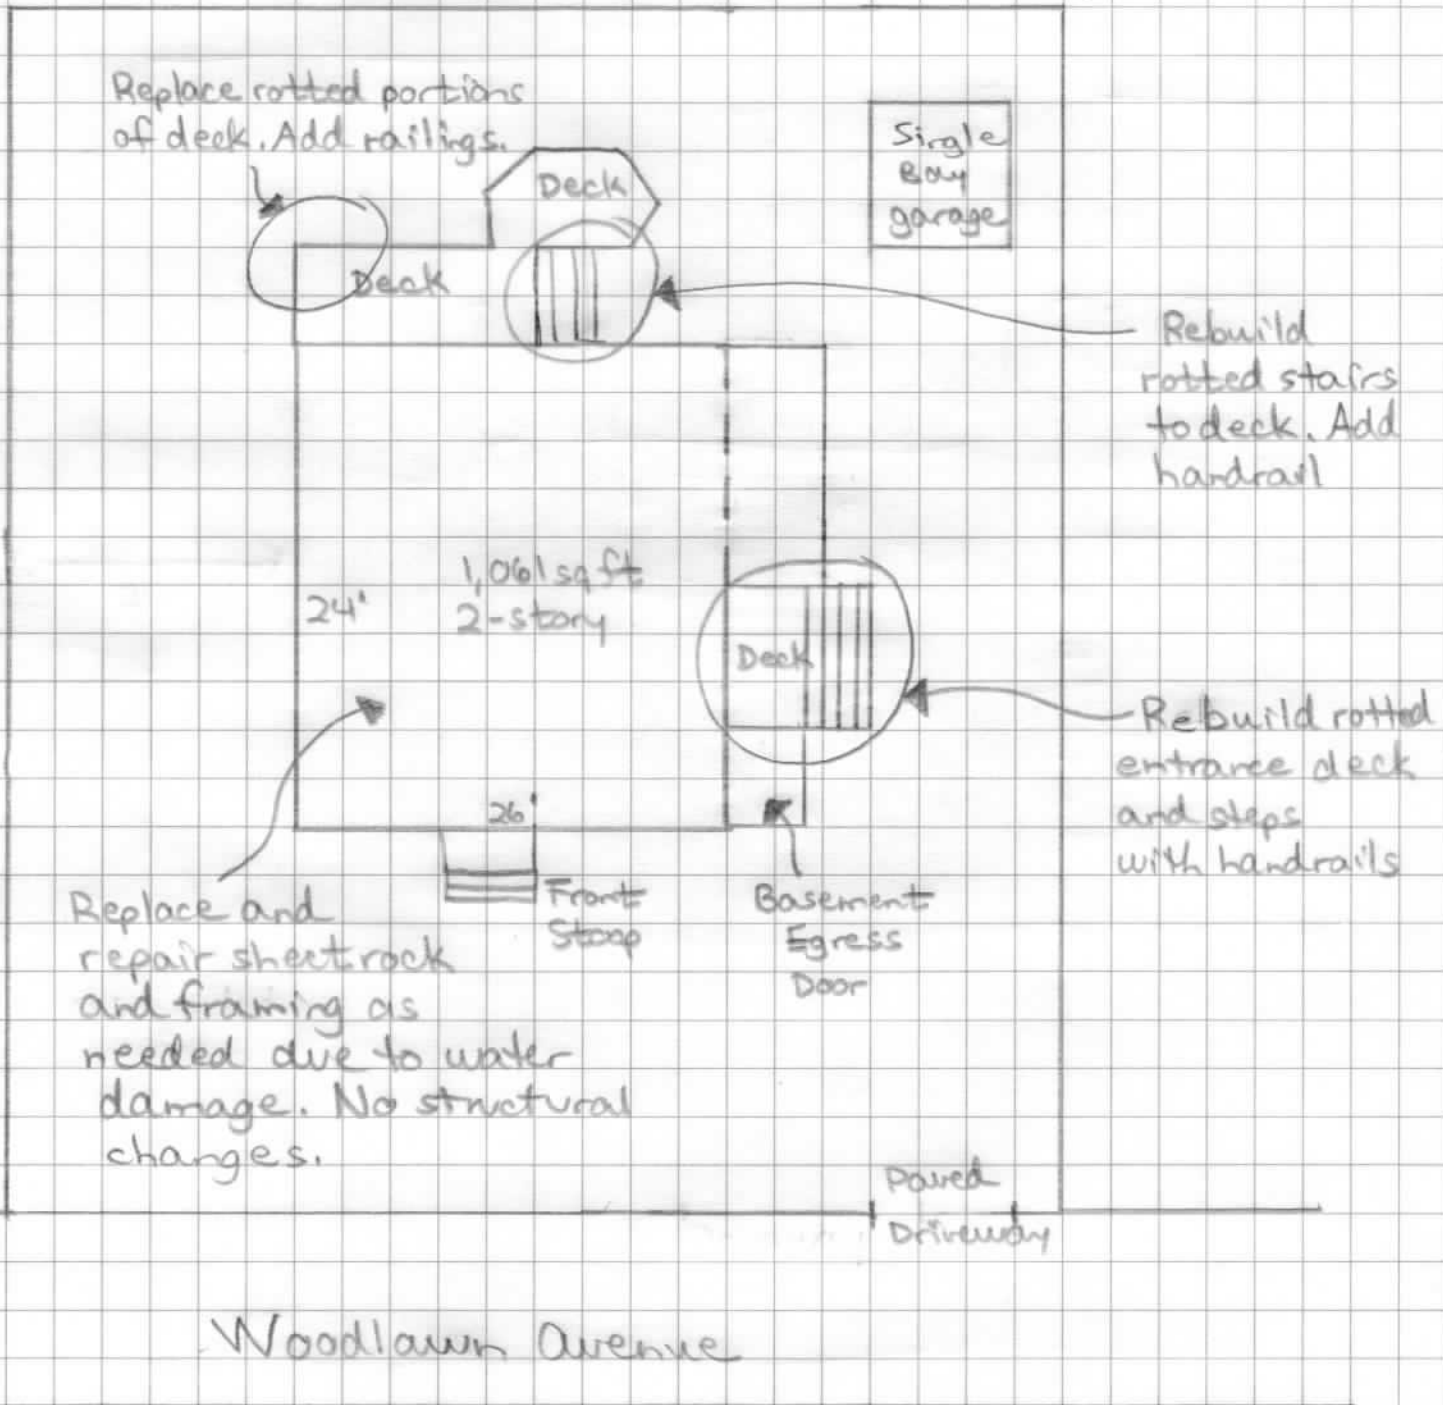 Replace rotted portions
of deck. Add railings.
Deck
Single
Bay
garage
Deck
Rebuild
rotted stairs
to deck. Add
handrail
1,061 sq ft
2-story
24'
Deck
Rebuild rotted
entrance deck
and steps
with handrails
26'
Front
Stoop
Basement
Egress
Door
Replace and
repair sheetrock
and framing as
needed due to water
damage. No structural
changes.
Paved
Driveway
Woodlawn Avenue